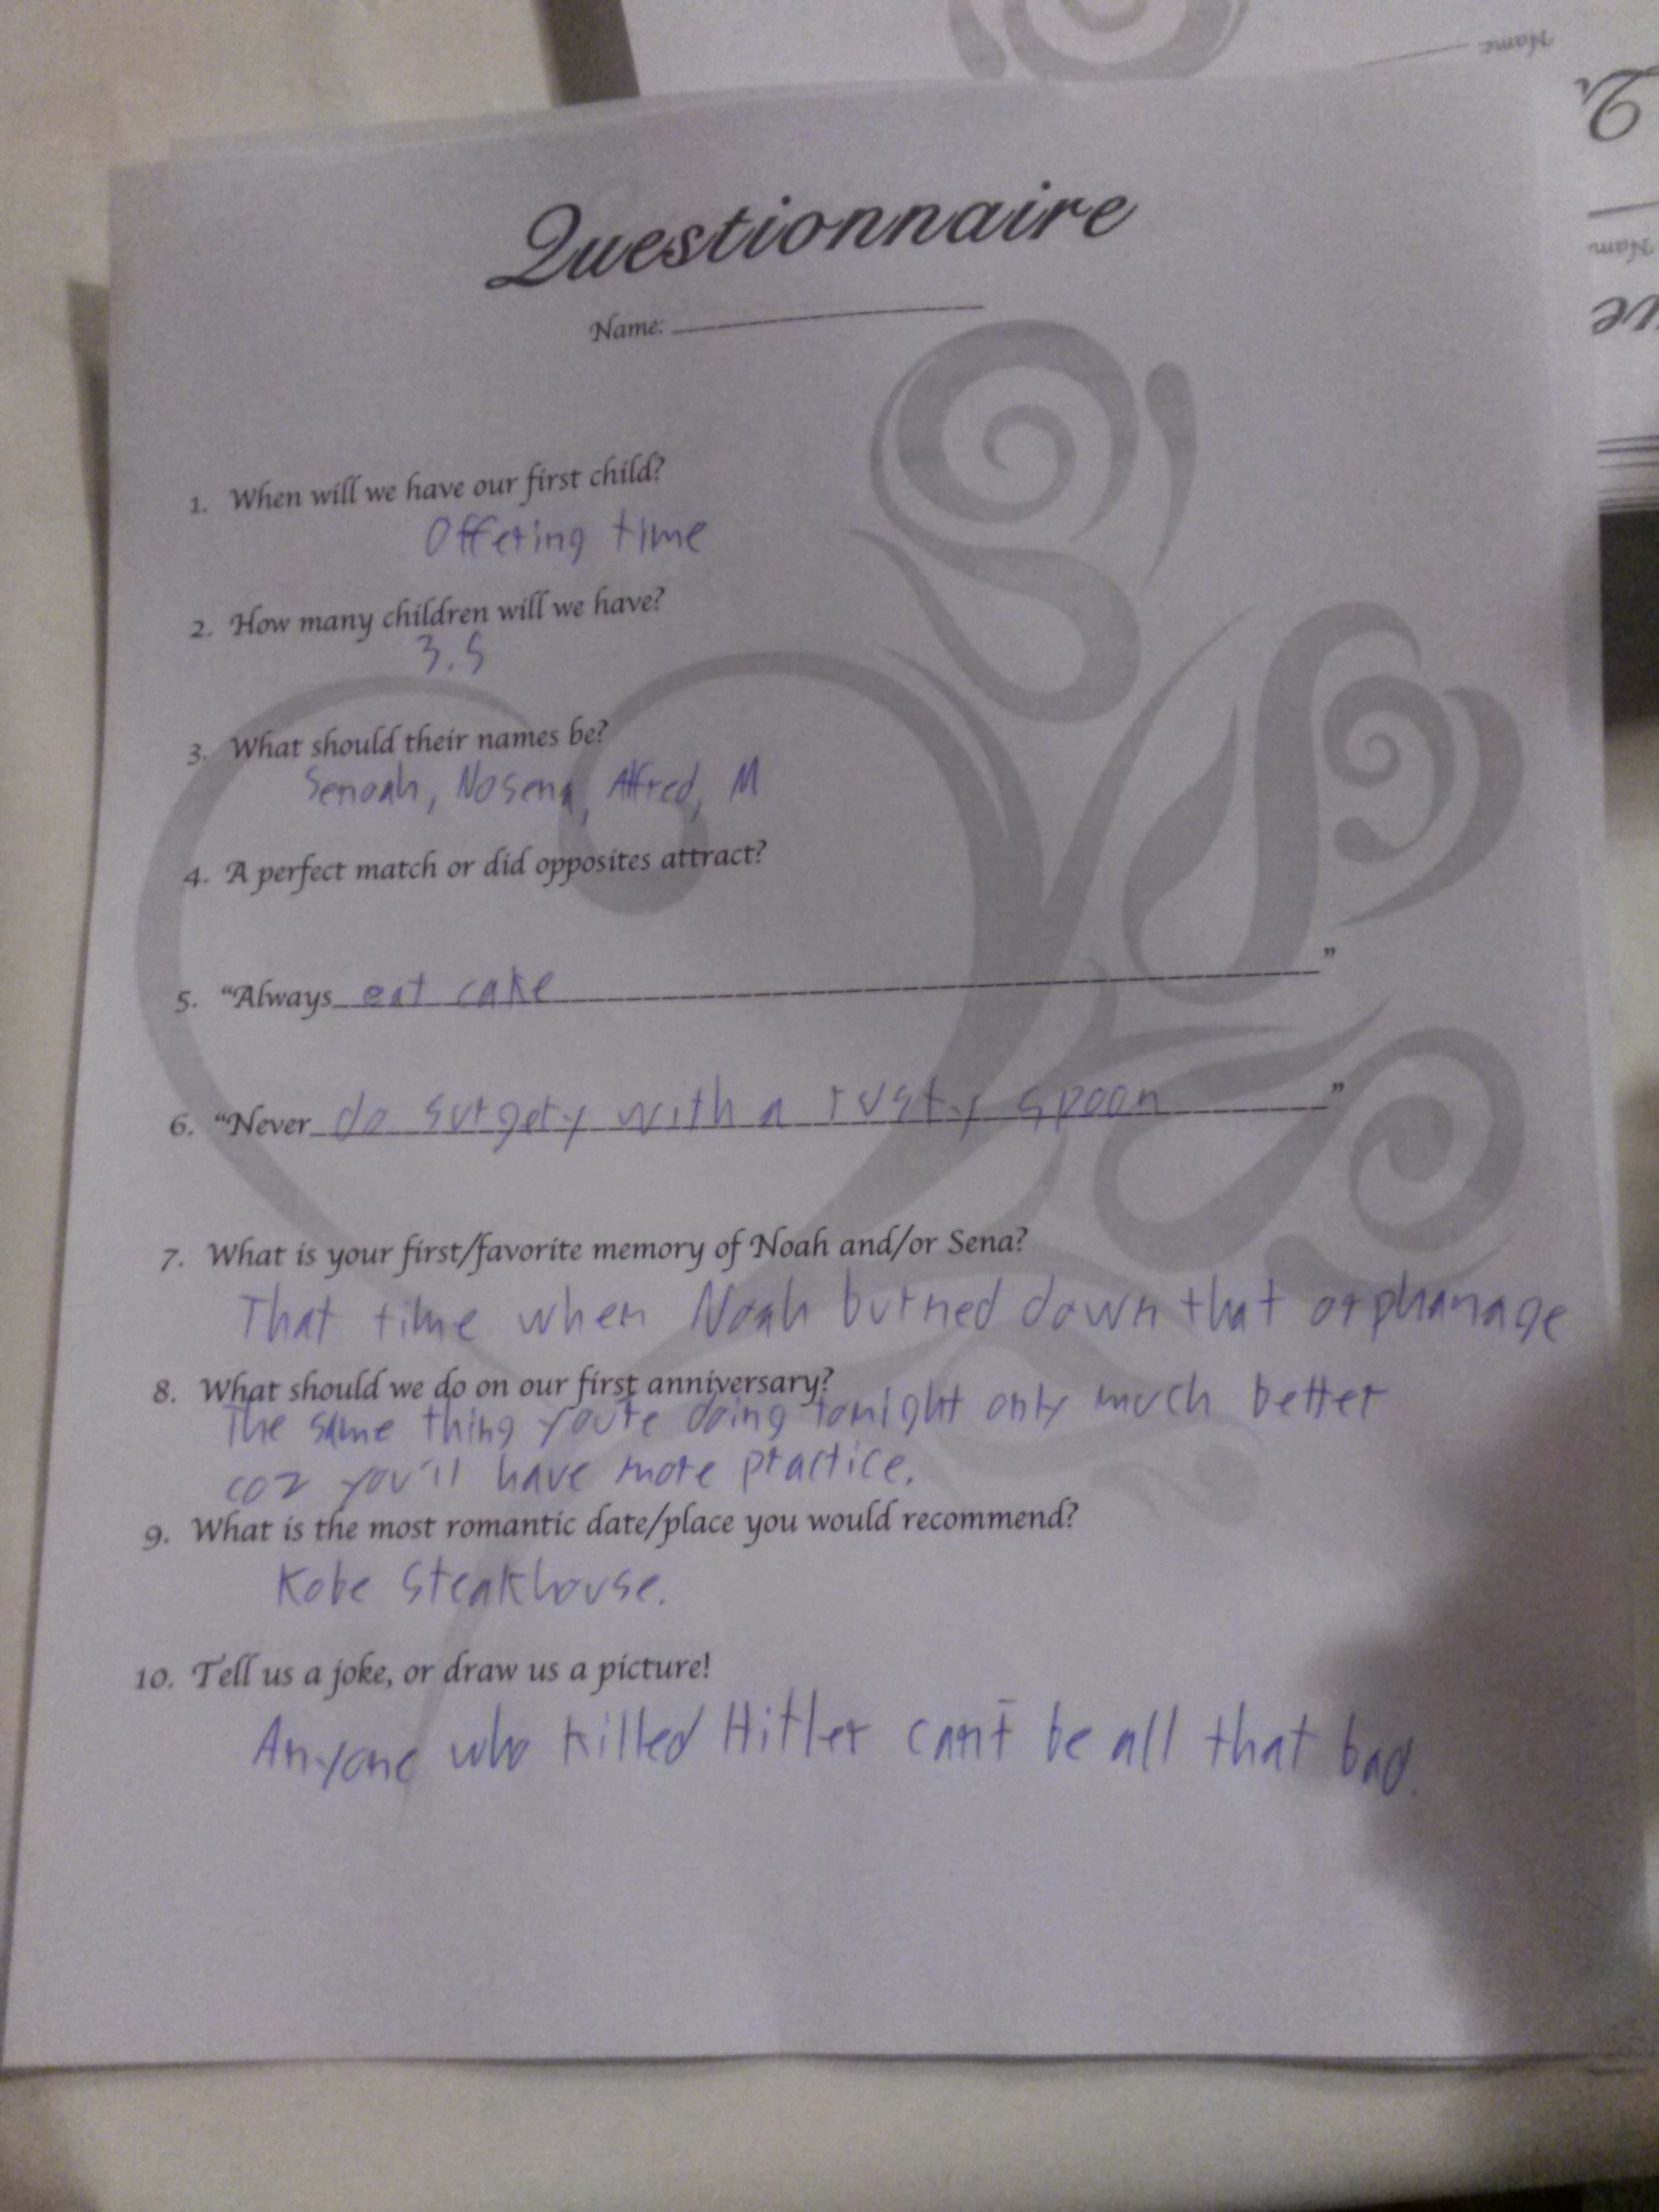 Name:
Questionnaire
Name:
Nam
1. When will we have our first child?
Offering time
2. How many children will we have?
3.5
3. What should their names be?
Senoah, Nosena, Alfred, M
4. A perfect match or did opposites attract?
5. "Always eat cake"
6. "Never do surgery with a rusty spoon"
7. What is your first/favorite memory of Noah and/or Sena?
That time when Noah burned down that orphanage
8. What should we do on our first anniversary?
The same thing you're doing tonight only much better
coz you'll have more practice.
9. What is the most romantic date/place you would recommend?
Kobe Steakhouse.
10. Tell us a joke, or draw us a picture!
Anyone who killed Hitler can't be all that bad.